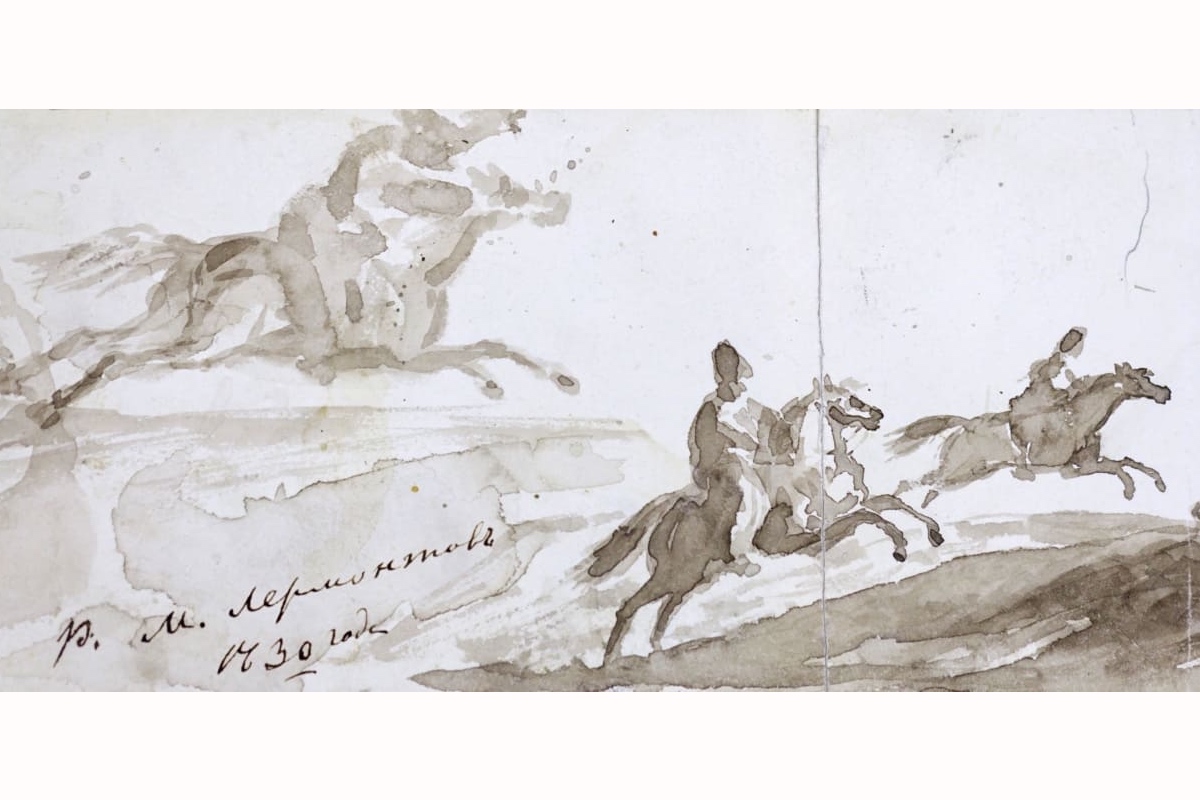 Р. М. Лермонтовъ
1830 года